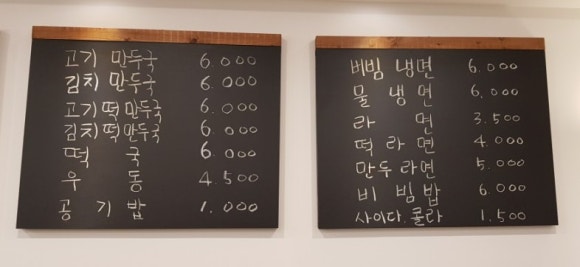 고기 만두국 6.000
김치 만두국 6.000
고기떡만두국 6.000
김치떡만두국 6.000
떡국 6.000
우동 4.500
공기밥 1.000
버빔 냉면 6.000
물냉면 6.000
라면 3.500
떡라면 4.000
만두라면 5.000
비빔밥 6.000
사이다.콜라 1.500